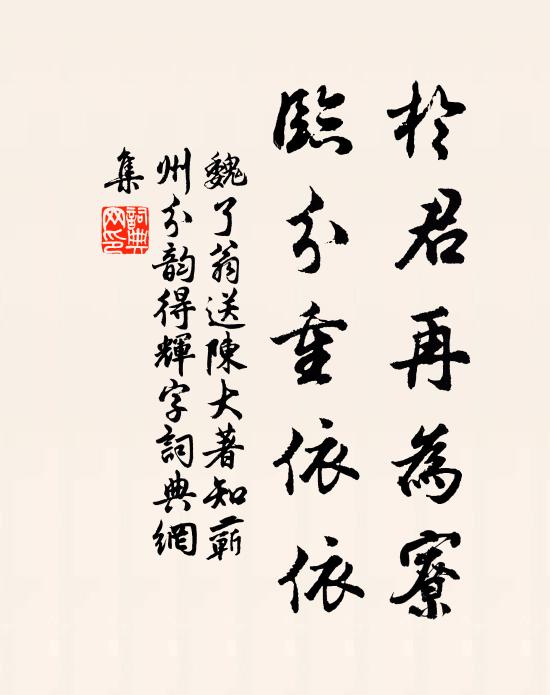 於君再為寮
臨分重依依
魏了翁送陳大著知蘄
州分韵得輝字詞典網
集
詞典網印